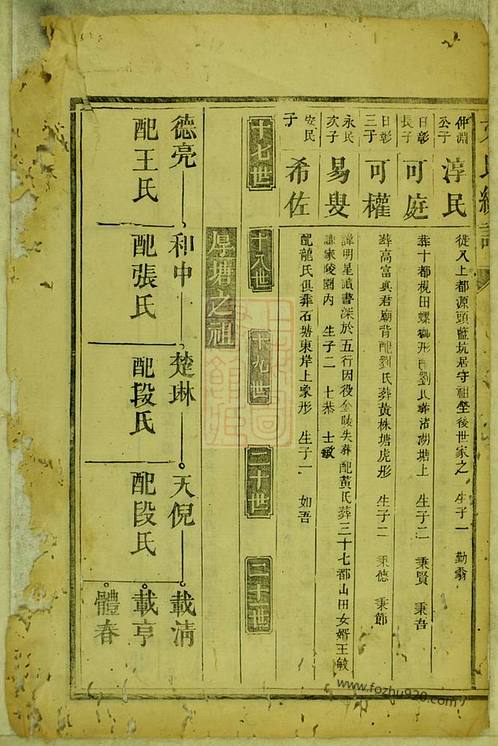 仲淵
公子
淳民
從入上都源頭藍坑居守祖塋後世家之 生子一 勤翁
日彰
長子
可庭
葬十都梘田螺螄形 劉氏葬 塘上 生子二 秉賢 秉吾
日彰
三子
可權
葬高富真君廟背配劉氏葬黃株塘虎形 生子二 秉德 秉節
永民
次子
易叟
諱明星讀書深於五行因役金陵失 配黃氏葬三十七都山田女婿王敏
謙家陵園內 生子二 士恭 士敏
安民
子
希佐
配龍氏俱葬石塘東岸上象形 生子一 如吾
十七世
十八世
十九世
二十世
二十一世
厚塘之祖
德亮
和中
楚琳
天倪
載清
配王氏
配張氏
配段氏
配段氏
載亨
體春
www.fozhu920.com